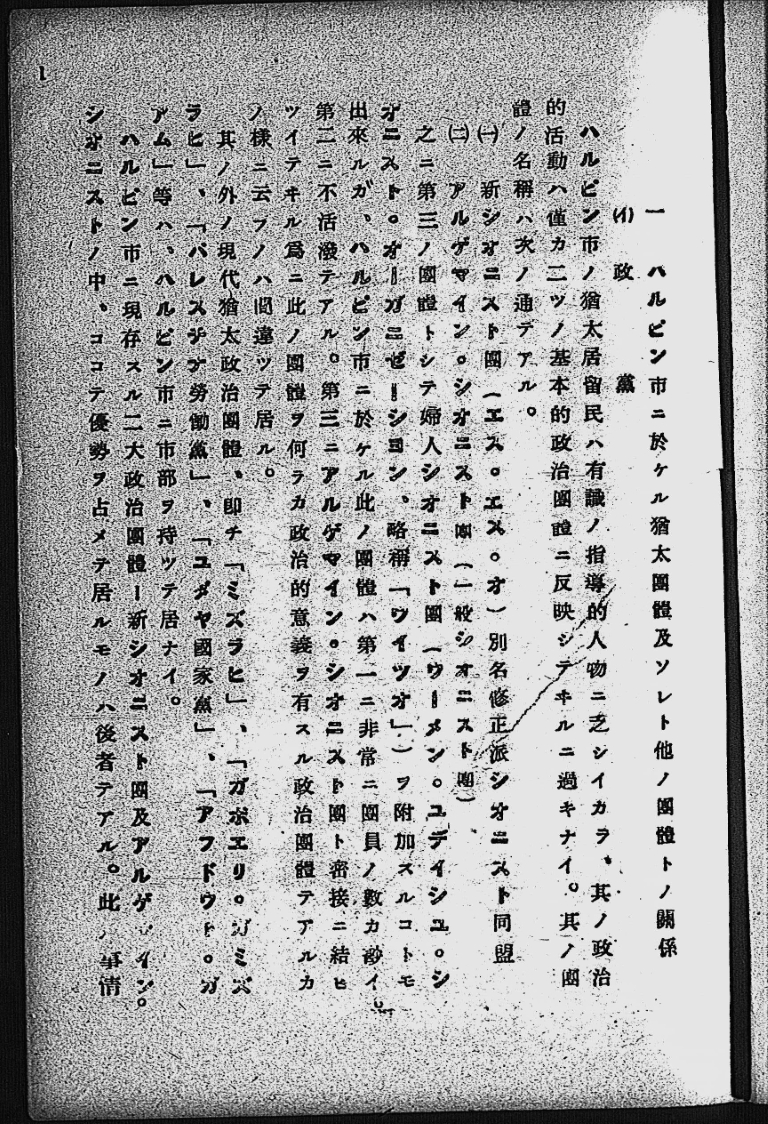 一　ハルビン市ニ於ケル猶太團體及ソレト他ノ團體トノ關係
(イ)　政　　黨
ハルビン市ノ猶太居留民ハ有識ノ指導的人物ニ乏シイカラ、其ノ政治
的活動ハ僅カ二ツノ基本的政治團體ニ反映シテヰルニ過キナイ。其ノ團
體ノ名稱ハ次ノ通デアル。
(一)　新シオニスト團（エス。エス。オ）別名修正派シオニスト同盟
(二)　アルゲマイン。シオニスト團（一般シオニスト團）
之ニ第三ノ團體トシテ婦人シオニスト團（ウーメン。ユデイシユ。シ
オニスト。オーガニゼーシヨン、略稱「ワイツオ」）ヲ附加スルコトモ
出來ルガ、ハルビン市ニ於ケル此ノ團體ハ第一ニ非常ニ團員ノ數カ尠イ。
第二ニ不活潑デアル。第三ニアルゲマイン。シオニスト團ト密接ニ結ヒ
ツイテヰル爲ニ此ノ團體ヲ何ラカ政治的意義ヲ有スル政治團體テアルカ
ノ樣ニ云フノハ間違ツテ居ル。
其ノ外ノ現代猶太政治團體、卽チ「ミズラヒ」、「ガポエリ。ガミズ
ラヒ」、「パレスチナ勞働黨」、「ユダヤ國家黨」、「アフドウト。ガ
アム」等ハ、ハルビン市ニ市部ヲ持ツテ居ナイ。
ハルビン市ニ現存スル二大政治團體ー新シオニスト團及アルゲマイン。
シオニストノ中、ココテ優勢ヲ占メテ居ルモノハ後者テアル。此ノ事情
1